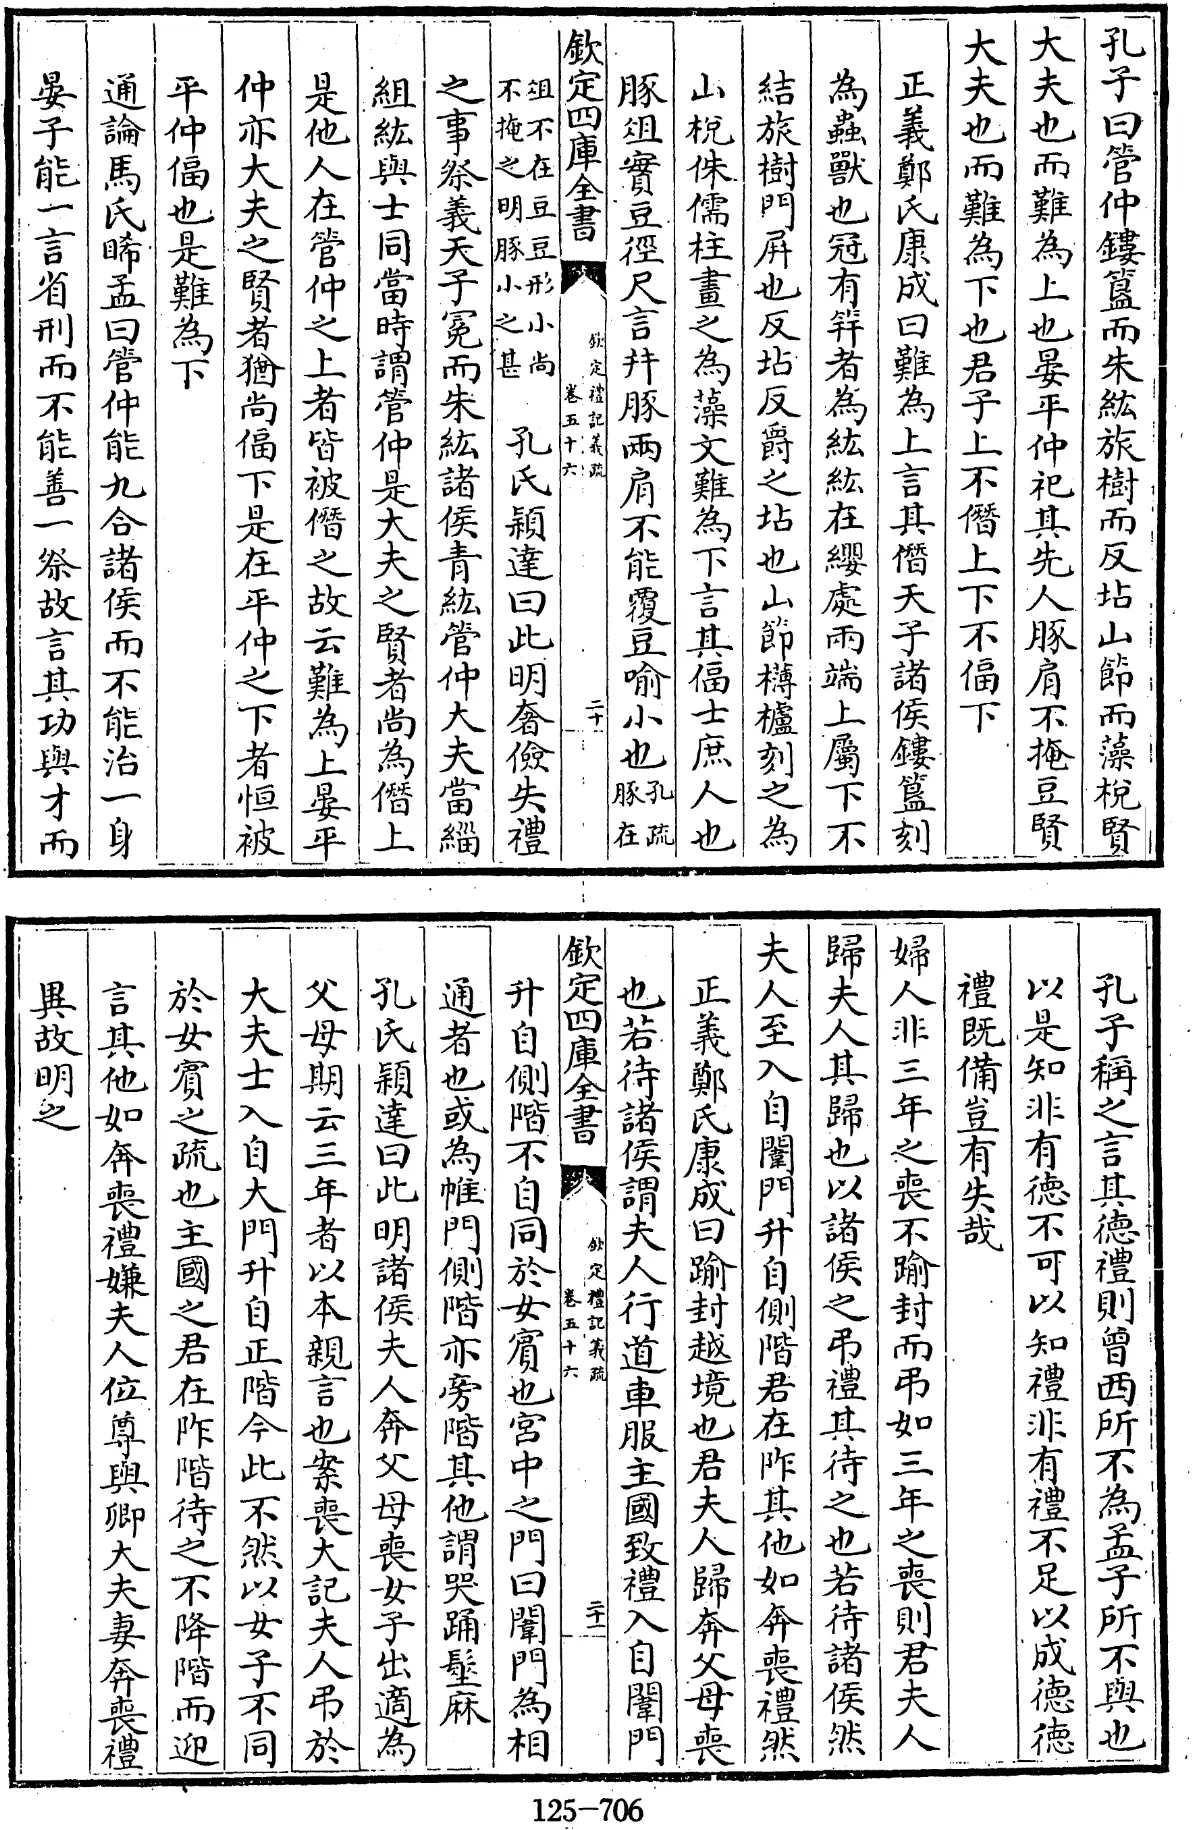 孔子曰管仲鏤簋而朱紘旅樹而反坫山節而藻梲賢
大夫也而難為上也晏平仲祀其先人豚肩不掩豆賢
大夫也而難為下也君子上不僭上下不偪下
正義鄭氏康成曰難為上言其僭天子諸侯鏤簋刻
為蟲獸也冠有笄者為紘紘在纓處兩端上屬下不
結旅樹門屏也反坫反爵之坫也山節欂櫨刻之為
山梲侏儒柱畫之為藻文難為下言其偪士庶人也
豚俎實豆徑尺言幷豚兩肩不能覆豆喻小也孔疏
豚在
欽定四庫全書
欽定禮記義疏
卷五十六
二十
俎不在豆豆形小尚
不掩之明豚小之甚
孔氏穎達曰此明奢儉失禮
之事祭義天子冕而朱紘諸侯青紘管仲大夫當緇
組紘與士同當時謂管仲是大夫之賢者尚為僭上
是他人在管仲之上者皆被僭之故云難為上晏平
仲亦大夫之賢者猶尚偪下是在平仲之下者恒被
平仲偪也是難為下
通論馬氏睎孟曰管仲能九合諸侯而不能治一身
晏子能一言省刑而不能善一祭故言其功與才而
孔子稱之言其德禮則曾西所不為孟子所不與也
以是知非有德不可以知禮非有禮不足以成德德
禮既備豈有失哉
婦人非三年之喪不踰封而弔如三年之喪則君夫人
歸夫人其歸也以諸侯之弔禮其待之也若待諸侯然
夫人至入自闈門升自側階君在阼其他如奔喪禮然
正義鄭氏康成曰踰封越境也君夫人歸奔父母喪
也若待諸侯謂夫人行道車服主國致禮入自闈門
欽定四庫全書
欽定禮記義疏
卷五十六
二十一
升自側階不自同於女賓也宮中之門曰闈門為相
通者也或為帷門側階亦旁階其他謂哭踊髽麻
孔氏穎達曰此明諸侯夫人奔父母喪女子出適為
父母期云三年者以本親言也案喪大記夫人弔於
大夫士入自大門升自正階今此不然以女子不同
於女賓之疏也主國之君在阼階待之不降階而迎
言其他如奔喪禮嫌夫人位尊與卿大夫妻奔喪禮
異故明之
125-706